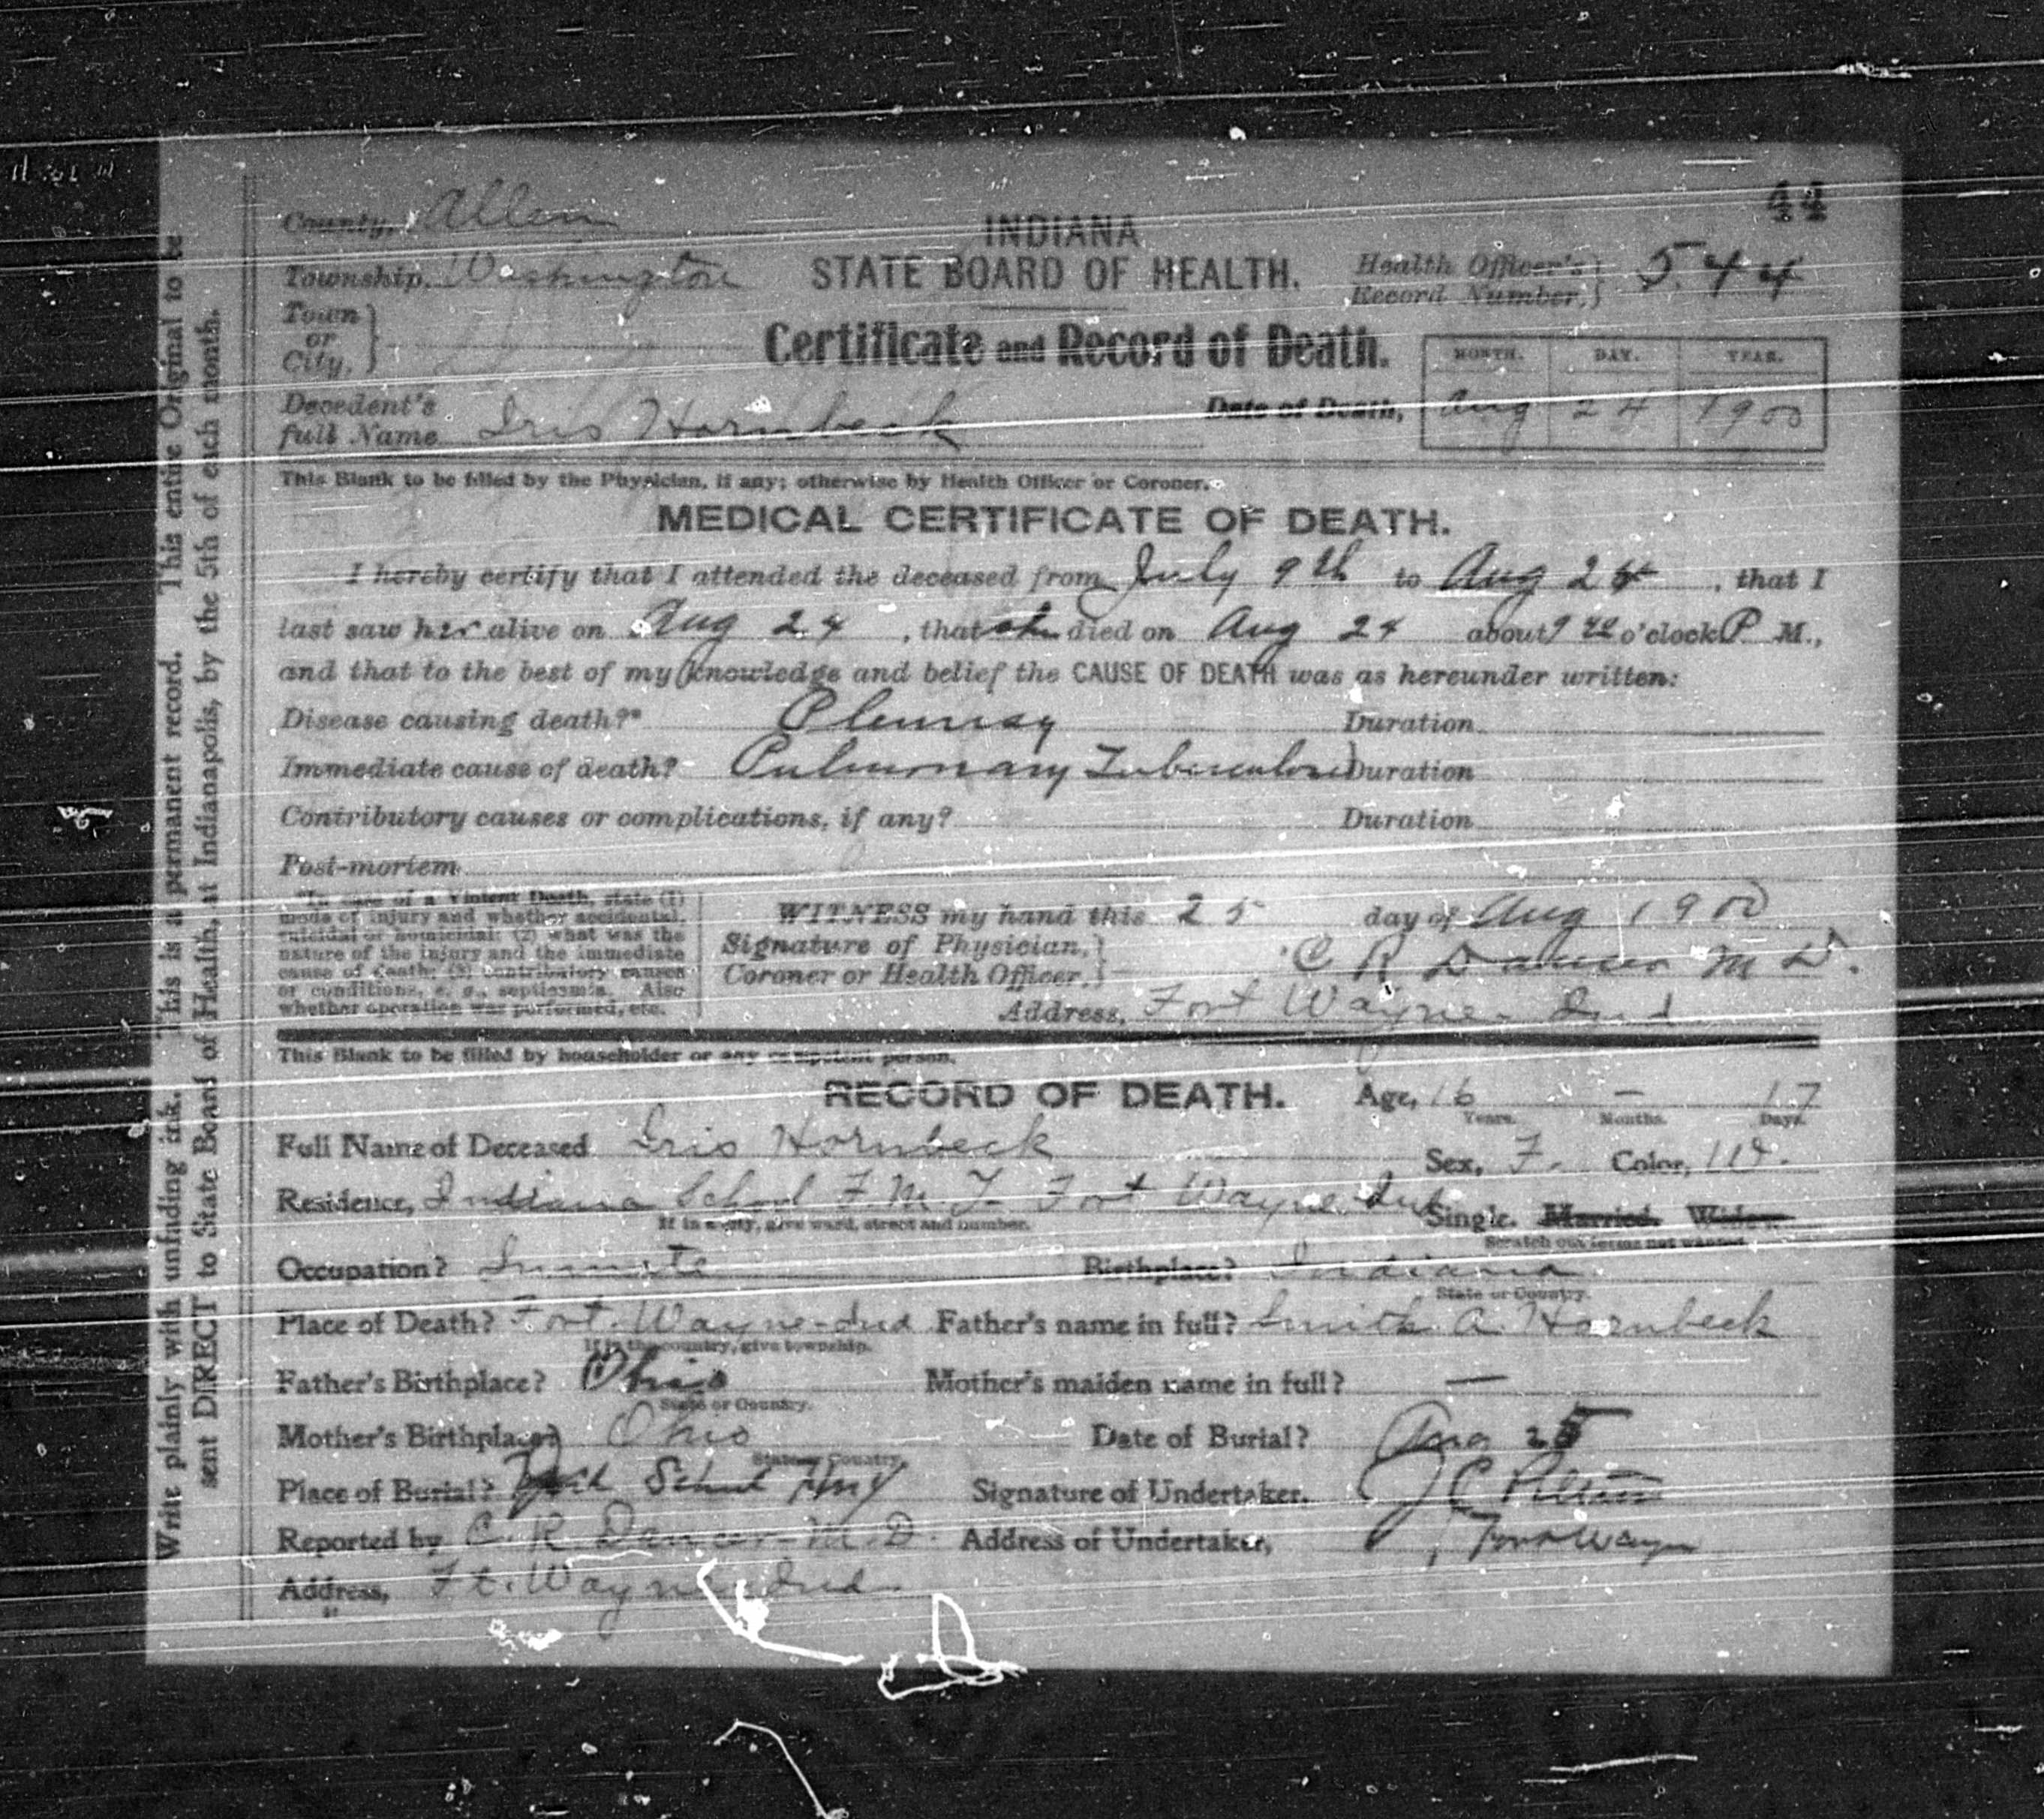 44
County, Allen
INDIANA
Township, Washington
STATE BOARD OF HEALTH.
Health Officer's Record Number, 544
Town or City,
Certificate and Record of Death.
MONTH. DAY. YEAR.
Decedent's full Name Iris Hornbeck
Date of Death, Aug 24 1900
This Blank to be filled by the Physician, if any; otherwise by Health Officer or Coroner.
MEDICAL CERTIFICATE OF DEATH.
I hereby certify that I attended the deceased from July 9th to Aug 24, that I
last saw her alive on Aug 24, that she died on Aug 24 about 9 o'clock P. M.,
and that to the best of my knowledge and belief the CAUSE OF DEATH was as hereunder written:
Disease causing death?* Pleurisy Duration
Immediate cause of death? Pulmonary Tuberculosis Duration
Contributory causes or complications, if any? Duration
Post-mortem
*In case of a Violent Death, state (1)
mode of injury and whether accidental,
suicidal or homicidal; (2) what was the
nature of the injury and the immediate
cause of death; (3) contributory causes
or conditions, e. g., septicemia. Also
whether operation was performed, etc.
WITNESS my hand this 25 day of Aug 1900
Signature of Physician, Coroner or Health Officer, C R Dancer M D.
Address, Fort Wayne Ind.
This Blank to be filled by householder or any competent person.
RECORD OF DEATH.
Age, 16 – 17
Years. Months. Days.
Full Name of Deceased Iris Hornbeck
Sex, F. Color, W.
Residence, Indiana School F. M. Y. Fort Wayne Ind
If in a city, give ward, street and number.
Single. Married. Widow.
Scratch out terms not wanted.
Occupation? Inmate Birthplace? Indiana
State or Country.
Place of Death? Fort Wayne Ind Father's name in full? Smith A. Hornbeck
If in the country, give township.
Father's Birthplace? Ohio Mother's maiden name in full? —
State or Country.
Mother's Birthplace? Ohio Date of Burial? Aug 25
State or Country.
Place of Burial? School Signature of Undertaker, J C
Reported by C. R. Dancer M. D. Address of Undertaker, Fort Wayne
Address, Ft. Wayne Ind.
Write plainly with unfading ink. This is a permanent record. This entire Original to be
sent DIRECT to State Board of Health, at Indianapolis, by the 5th of each month.